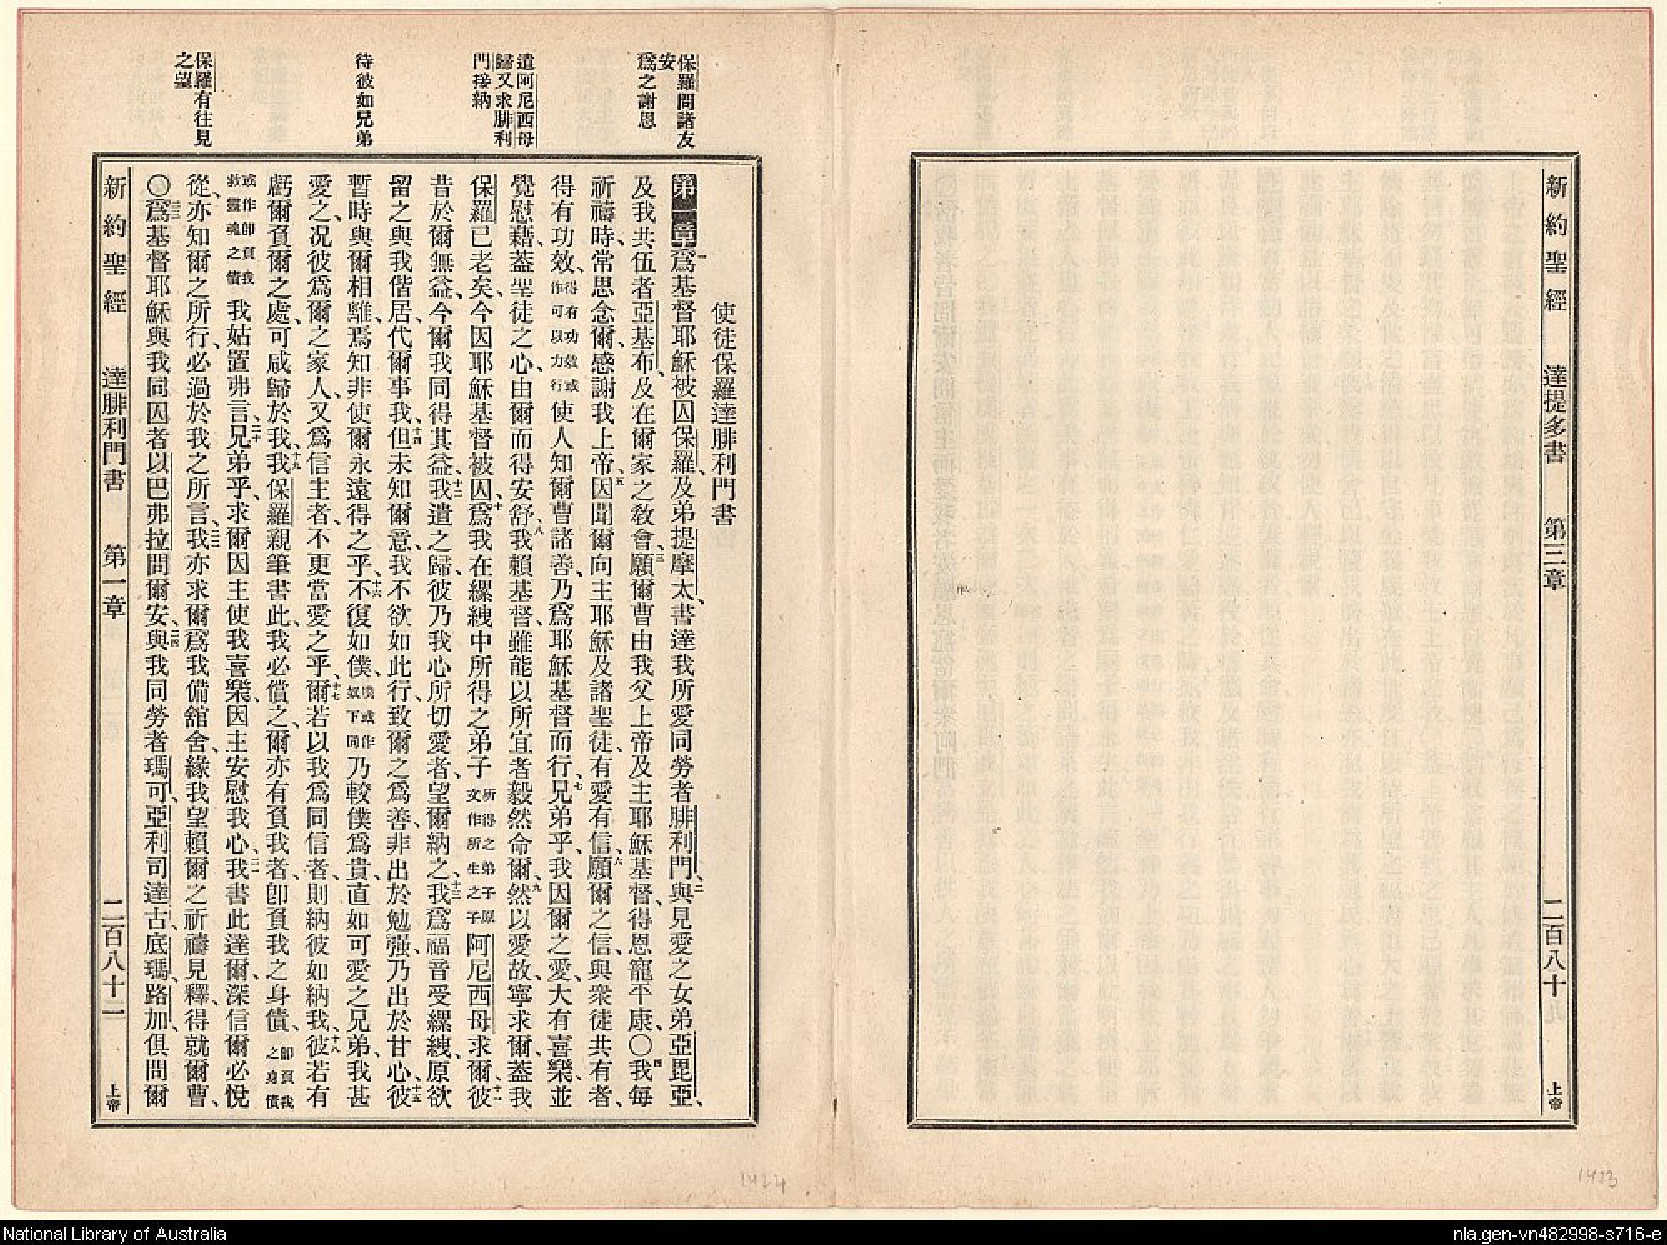 新約聖經 達提多書 第三章 二百八十 上帝
保羅問諸友
安
爲之謝恩
遣阿尼西母
歸又求腓利
門接納
待彼如兄弟
保羅有往見
之望
使徒保羅達腓利門書
第一章一爲基督耶穌被囚保羅、及弟提摩太、書達我所愛同勞者腓利門、二與見愛之女弟亞毘亞、
及我共伍者亞基布、及在爾家之敎會、三願爾曹由我父上帝及主耶穌基督、得恩寵平康、〇四我每
祈禱時、常思念爾、感謝我上帝、五因聞爾向主耶穌及諸聖徒、有愛有信、六願爾之信、與衆徒共有者、
得有功效、得有功效或作可以力行使人知爾曹諸善、乃爲耶穌基督而行、七兄弟乎、我因爾之愛、大有喜樂、並
覺慰藉、蓋聖徒之心、由爾而得安舒、八我賴基督、雖能以所宜者毅然命爾、九然以愛故、寧求爾、蓋我
保羅已老矣、今因耶穌基督被囚、十爲我在縲絏中所得之弟子所得之弟子原文作所生之子阿尼西母求爾、十一彼
昔於爾無益、今爾我同得其益、十二我遣之歸、彼乃我心所切愛者、望爾納之、十三我爲福音受縲絏、原欲
留之與我偕居、代爾事我、十四但未知爾意、我不欲如此行、致爾之爲善、非出於勉强、乃出於甘心、十五彼
暫時與爾相離、焉知非使爾永遠得之乎、十六不復如僕、僕或作奴下同乃較僕爲貴、直如可愛之兄弟、我甚
愛之、况彼爲爾之家人、又爲信主者、不更當愛之乎、十七爾若以我爲同信者、則納彼如納我、十八彼若有
虧爾負爾之處、可咸歸於我、十九我保羅親筆書此、我必償之、爾亦有負我者、卽負我之身債、卽負我之身債
或作卽負我救靈魂之債我姑置弗言、二十兄弟乎、求爾因主使我喜樂、因主安慰我心、二一我書此達爾、深信爾必悅
從、亦知爾之所行、必過於我之所言、二二我亦求爾爲我備舘舍、緣我望賴爾之祈禱見釋、得就爾曹、
〇二三爲基督耶穌與我同囚者以巴弗拉問爾安、二四與我同勞者瑪可、亞利司達古、底瑪、路加、俱問爾
新約聖經 達腓利門書 第一章 二百八十一 上帝
1424
1423
National Library of Australia
nla.gen-vn482998-s716-e